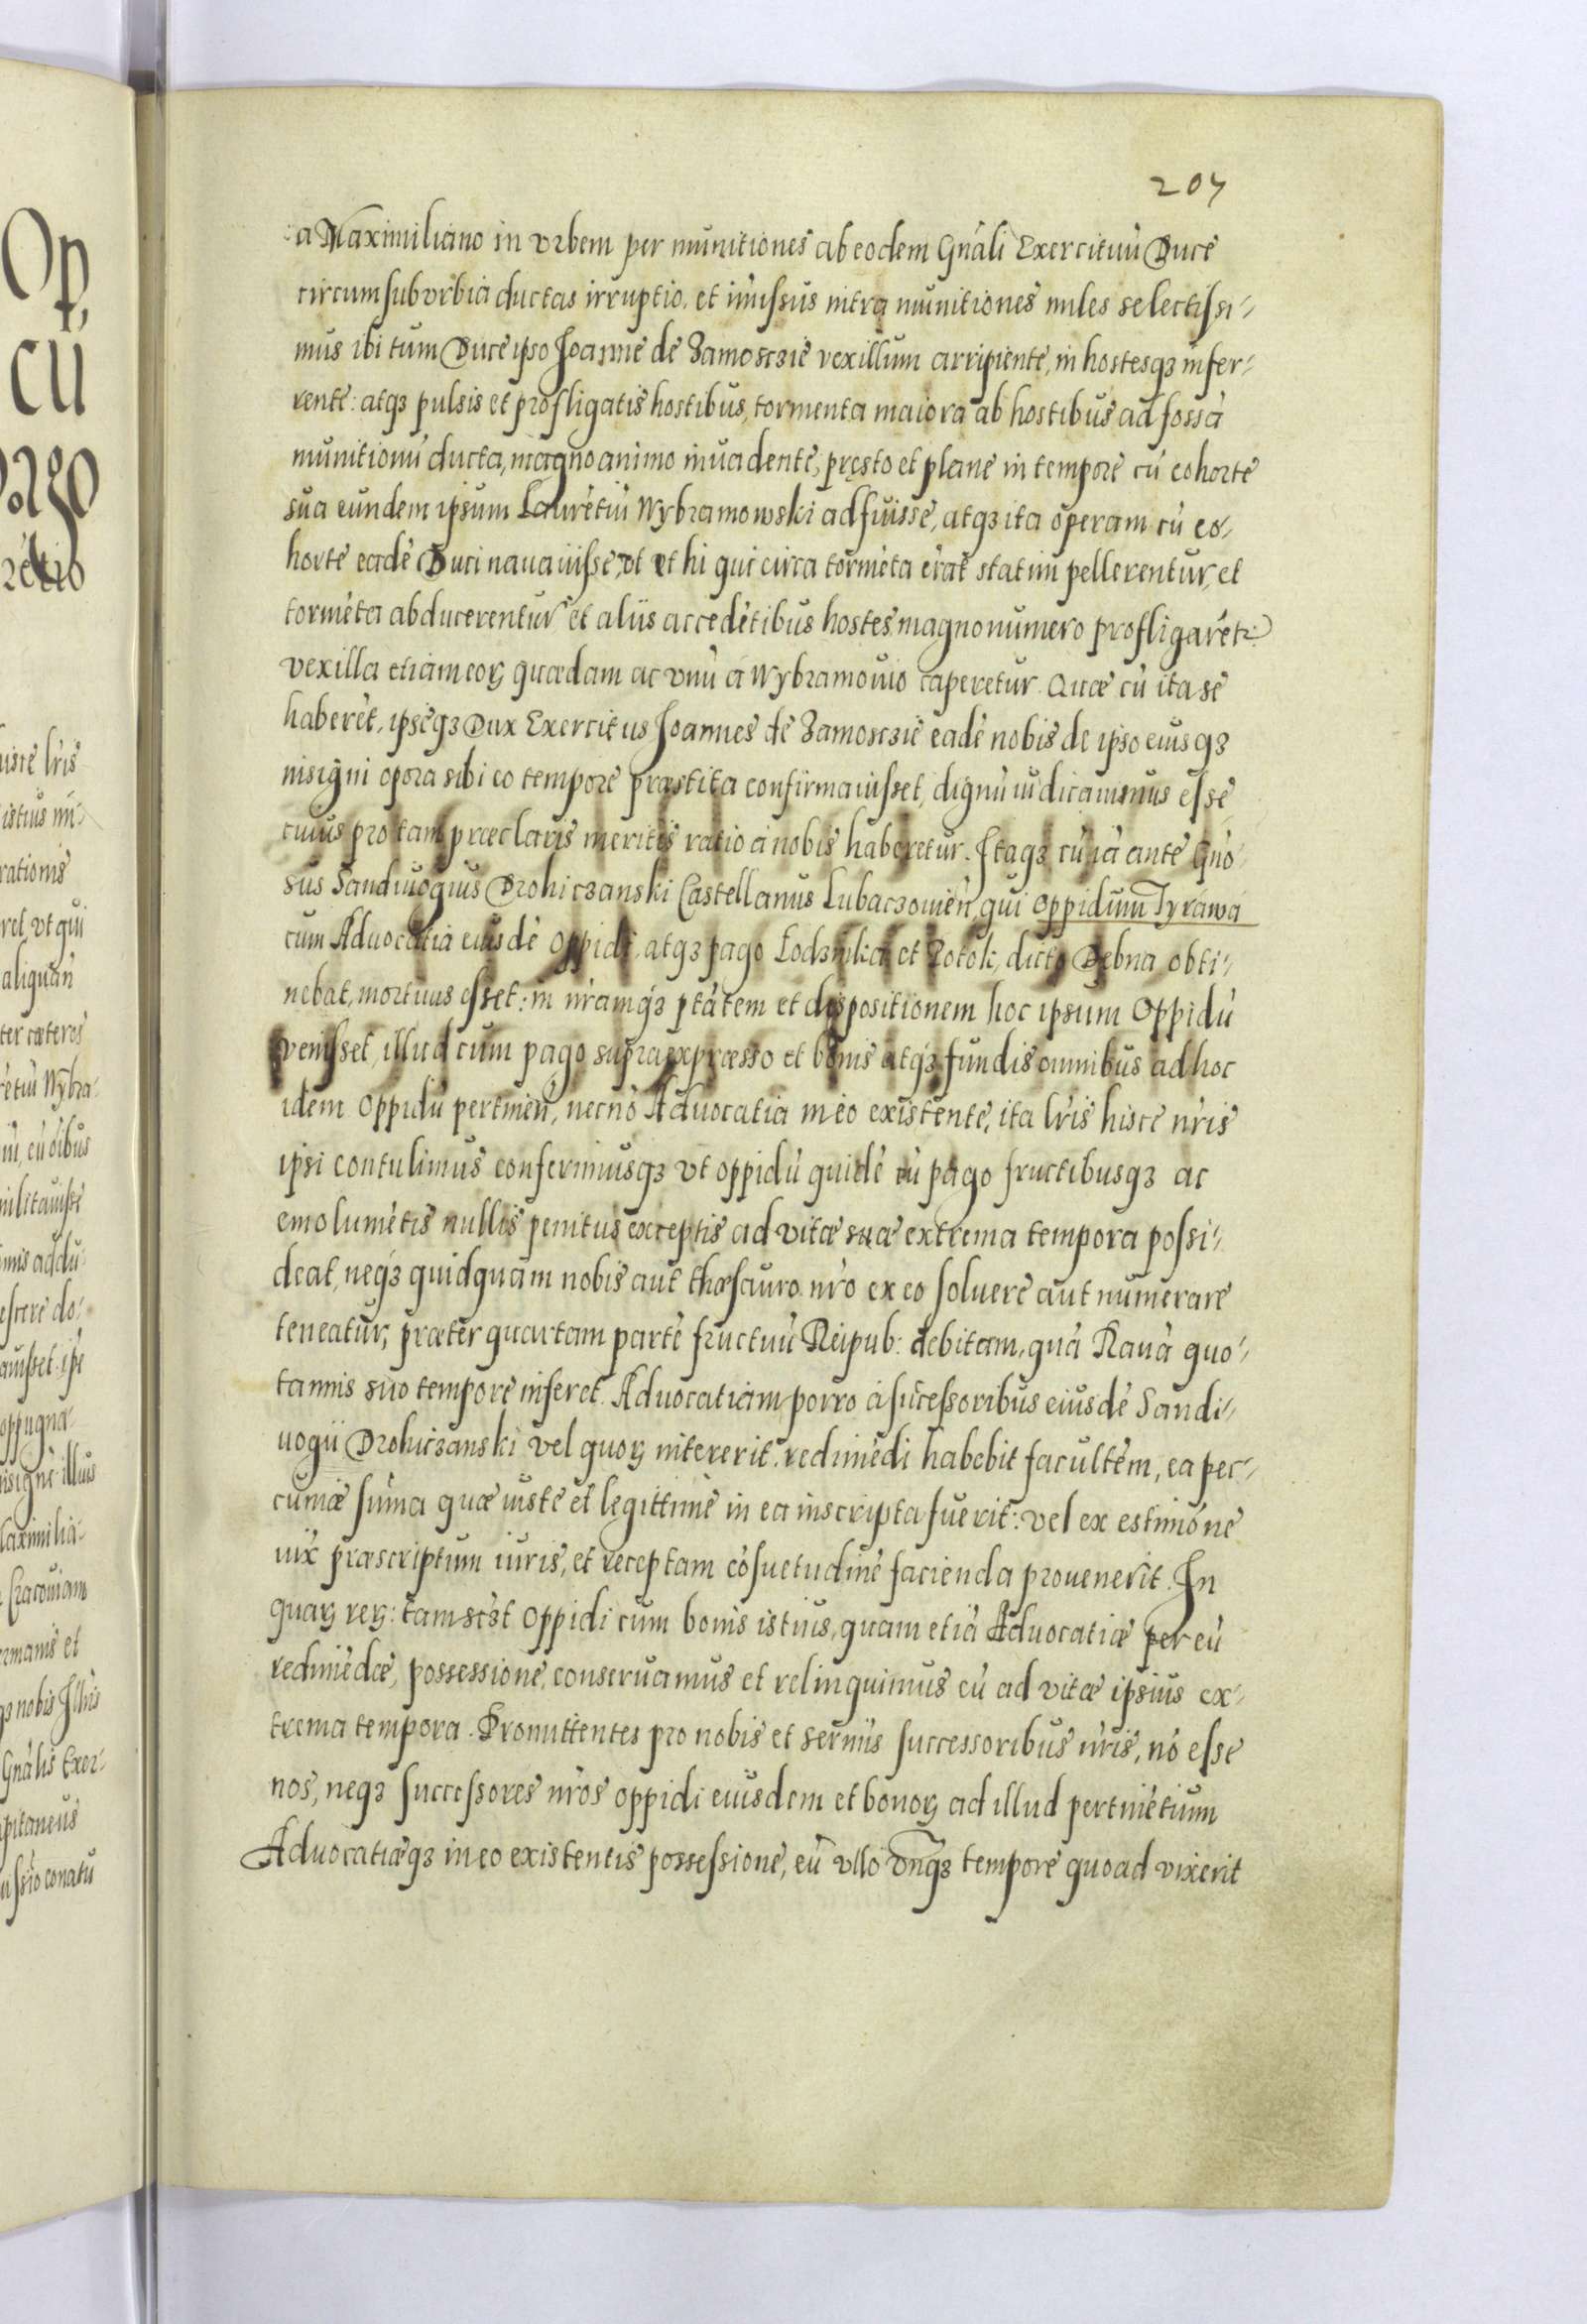 207
a Maximiliano in vrbem per munitiones ab eodem Gnàli Exercituù Duce
circum suburbia ductas irruptio, et imissus intra munitiones miles selectissi-
mus ibi tum Duce ipso Joanne de Zamosczie vexillum arripiente, in hostesq3 infer-
rente: atq3 pulsis et profligatis hostibus, tormenta maiora ab hostibus ad fossà
munitionù ducta, magno animo inuadente, pręsto et plane in tempore cù cohorte
sua eundem ipsum Laurètiù Wybramowski adfuisse, atq3 ita operam cù co-
horte eadè Duci nauauisse, vt et hi qui circa tormèta eràt statim pellerentur, et
tormèta abducerentur et aliis accedètibus hostes magno numero profligarètr
vexilla etiam eorꝝ quædam ac vnù à Wybramouio caperetur. Quæ cù ita se
haberèt, ipseq3 Dux Exercitus Joannes de Zamosczie eadè nobis de ipso eiusq3
insigni opera sibi eo tempore præstita confirmauisset, dignù iudicauimus esse
cuius pro tam præclaris meritis ratio à nobis haberetur. Itaq3 cù ià ante Gnò-
sus Sandiuogius Drohiczanski Castellanus Lubaczouieñ, qui Oppidum Tyrawa
cum Aduocatia eiusdè Oppidi, atq3 pago Lodzinka et Potok, dicto Dębna obti-
nebat, mortuus esset: in nràmq3 ptàtem et dispositionem hoc ipsum Oppidù
venisset, illud cum pago supraexpræsso et bonis atq3 fundis omnibus ad hoc
idem Oppidù pertineñ, necnò Aduocatia in eo existente, ita lrìs hisce nrìs
ipsi contulimus conferimusq3 vt oppidù quidè cù pago fructibusq3 ac
emolumètis nullis penitus exceptis ad vitæ suæ extrema tempora possi-
deat, neq3 quidquam nobis aut thæsauro nrò ex eo soluere aut numerare
teneatur, præter quartam partè fructuù Reipub: debitam, quà Rauà quo-
tannis suo tempore inferet. Aduocatiam porro à sucessoribus eiusdè Sandi-
uogii Drohiczanski vel quorꝝ intererit, redimèdi habebit facultèm, ea pec-
cuniæ sùma quæ iuste et legittime in ea inscripta fuerit: vel ex estimòne
iux præscriptum iuris, et receptam còsuetudinè facienda prouenerit. In
quarꝝ rerꝝ: tam sczt Oppidi cum bonis istius, quam etià Aduocatiæ per eù
redimèdæ, possessione, conseruamus et relinquimus eù ad vitæ ipsius ex-
trema tempora. Promittentes pro nobis et sermìs successoribus nrìs, nò esse
nos, neq3 successores nròs oppidi eiusdem et bonorꝝ ad illud pertinètium
Aduocatiæq3 in eo existentis possessione, eù vllo vnq3 tempore quoad vixerit